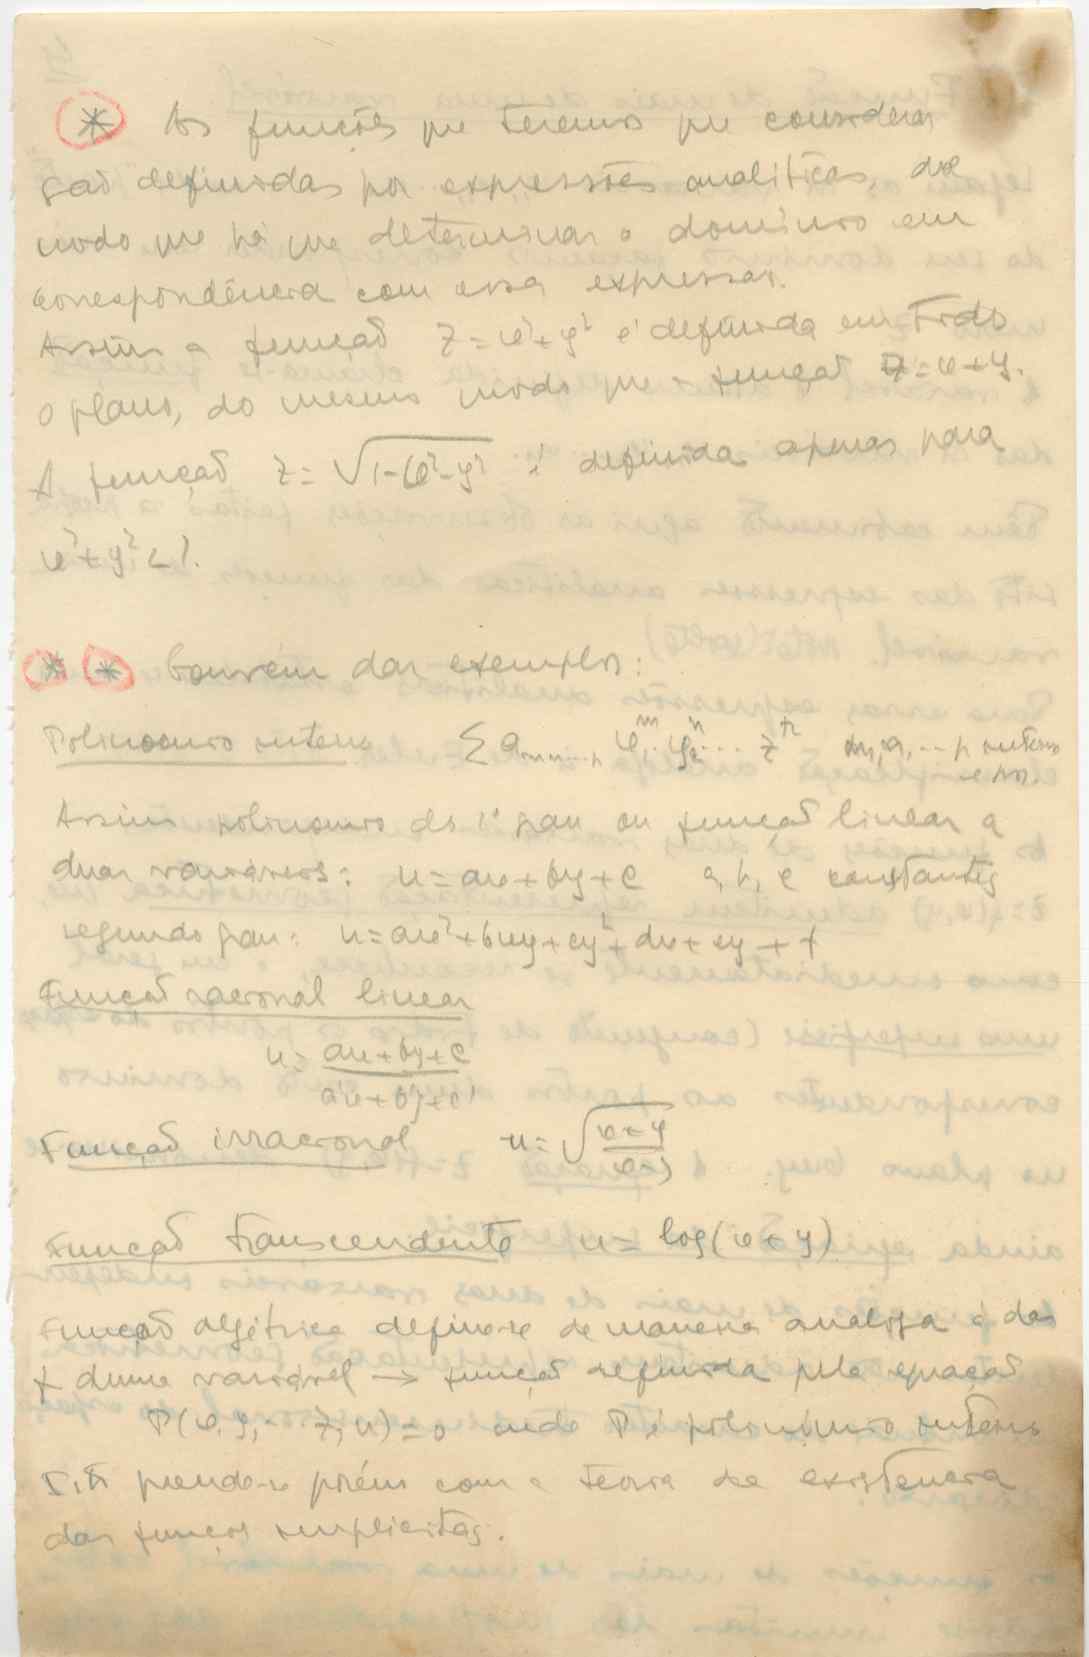 * As funções que teremos que considerar
são definidas por expressões analíticas, de
modo que há que determinar o domínio em
correspondência com essa expressão.
Assim a função z = x² + y² é definida em todo
o plano, do mesmo modo que a função z = x + y.
A função z = √1-x²-y² é definida apenas para
x² + y² < 1.
* * Convém dar exemplos:
Polinomio inteiro Σ a m n ... p x^m y^n ... z^p m, n, ... p inteiros
e pos.
Assim polinomio do 1º grau ou função linear a
duas variáveis: u = ax + by + c a, b, c constantes
segundo grau: u = ax² + bxy + cy² + dx + ey + f
Função racional linear
u = ax + by + c
a'x + b'y + c'
Função irracional u = √x + y
x - y
Função transcendente u = log(x + y)
Função algébrica define-se de maneira analoga á das
f duma variável → função definida pela equação
P(x, y, - z, u) = 0 onde P é polinómio inteiro
Isto prende-se porém com a teoria da existencia
das funções implicitas.